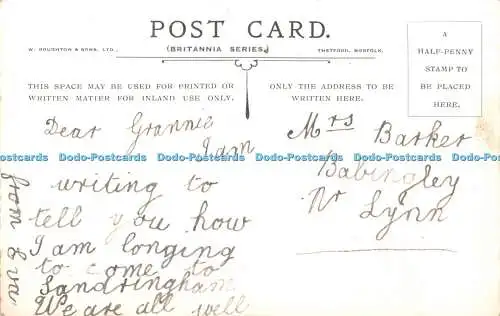 POST CARD.
W. BOUGHTON & SONS, LTD.,
(BRITANNIA SERIES)
THETFORD, NORFOLK.
A
HALF-PENNY
STAMP TO
BE PLACED
HERE.
THIS SPACE MAY BE USED FOR PRINTED OR
WRITTEN MATTER FOR INLAND USE ONLY.
ONLY THE ADDRESS TO BE
WRITTEN HERE.
Dear Grannie
I am
writing to
tell you how
I am longing
to come to
Sandringham
We are all well
from Eva
Mrs Barker
Babingley
Nr Lynn
Dodo-Postcards Dodo-Postcards Dodo-Postcards Dodo-Postcards Dodo-Postcards Dodo-Postcards